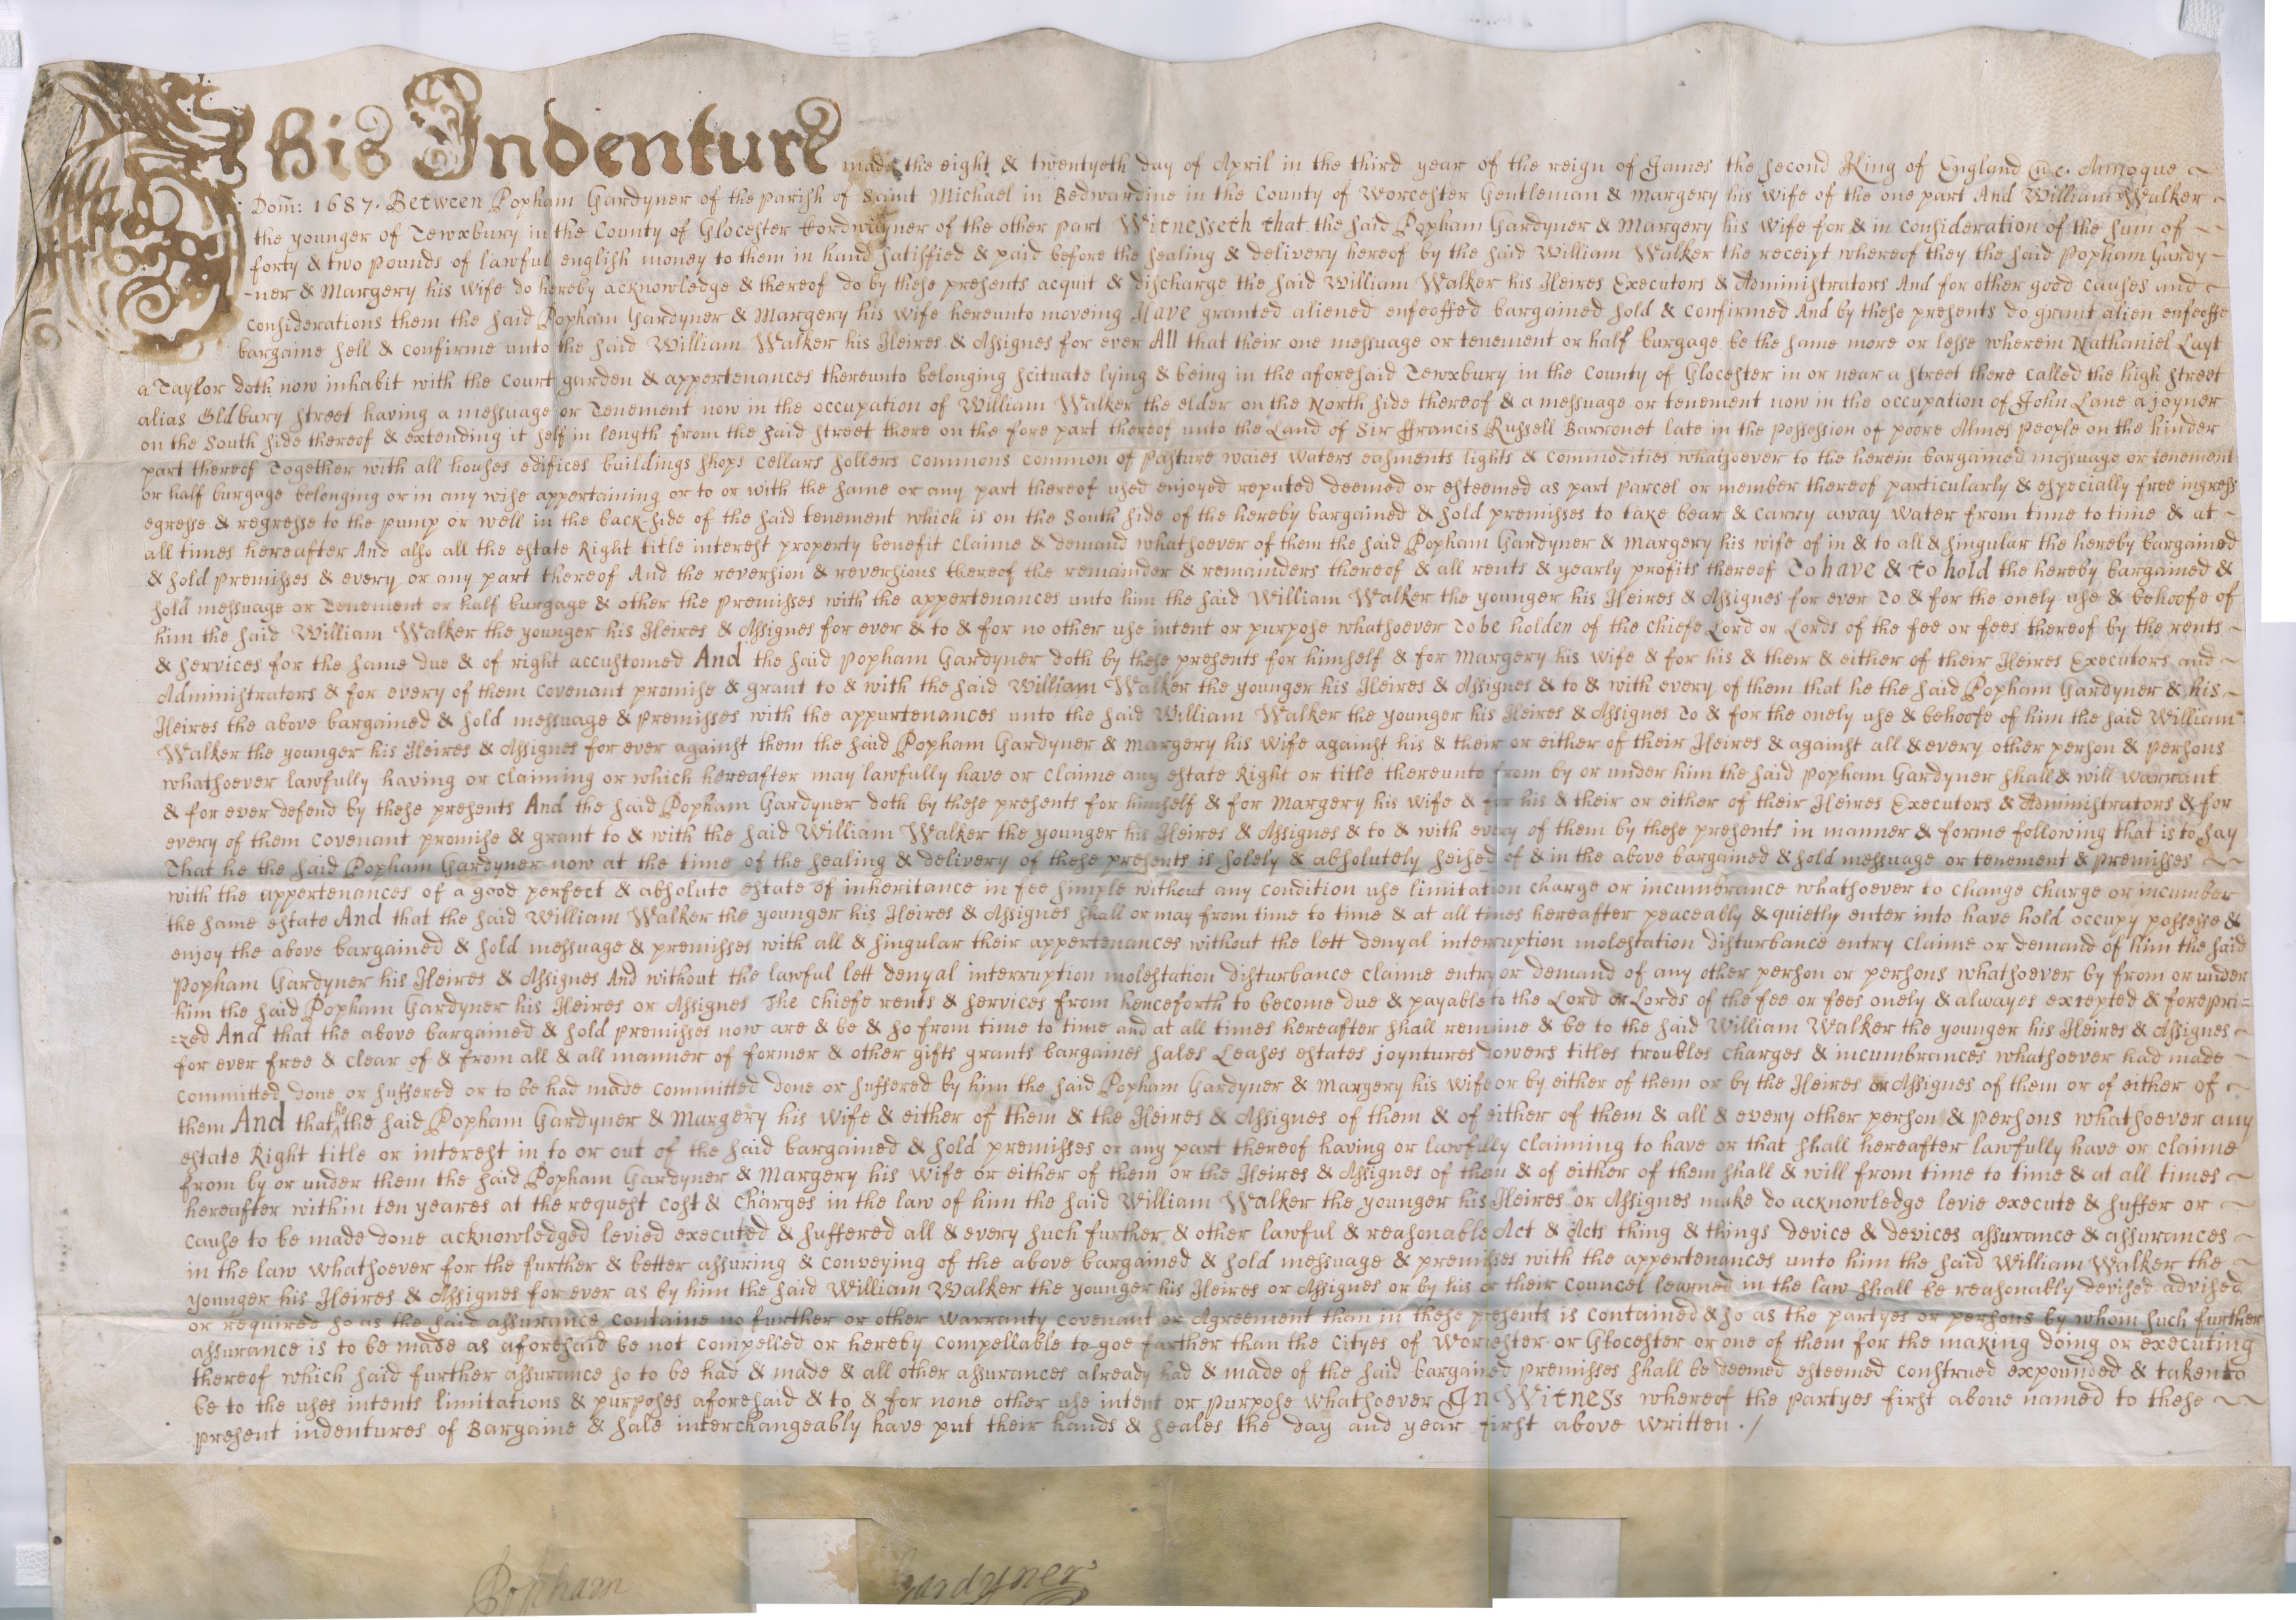 This Indenture made the eight & twentyeth day of April in the third year of the reign of James the second King of England &c. Annoque
Dom: 1687. Between Popham Gardyner of the parish of Saint Michael in Bedwardine in the County of Worcester Gentleman & Margery his wife of the one part And William Walker
the younger of Tewxbury in the County of Glocester Cordwayner of the other part Witnesseth that the said Popham Gardyner & Margery his wife for & in consideration of the sum of
forty & two pounds of lawful english money to them in hand satisfied & paid before the sealing & delivery hereof by the said William Walker the receipt whereof they the said Popham Gardy-
-ner & Margery his wife do hereby acknowledge & thereof do by these presents acquit & discharge the said William Walker his Heires Executors & Administrators And for other good causes and
considerations them the said Popham Gardyner & Margery his wife hereunto moveing Have granted aliened enfeoffed bargained sold & confirmed And by these presents do grant alien enfeoffe
bargaine sell & confirme unto the said William Walker his Heires & Assignes for ever All that their one messuage or tenement or half burgage be the same more or lesse wherein Nathaniel Layt
a Taylor doth now inhabit with the Court garden & appertenances thereunto belonging scituate lying & being in the aforesaid Tewxbury in the County of Glocester in or near a street there called the high street
alias Oldbury street having a messuage or Tenement now in the occupation of William Walker the elder on the North side thereof & a messuage or tenement now in the occupation of John Lane a joyner
on the South side thereof & extending it self in length from the said street there on the fore part thereof unto the Land of Sir ffrancis Russell Barronet late in the possession of poore Almes People on the hinder
part thereof Together with all houses edifices buildings shops cellars sollers commons common of pasture waies waters easments lights & commodities whatsoever to the herein bargained messuage or tenement
or half burgage belonging or in any wise appertaining or to or with the same or any part thereof used enjoyed reputed deemed or esteemed as part parcel or member thereof particularly & especially free ingress
egresse & regresse to the pump or well in the back-side of the said tenement which is on the South side of the hereby bargained & sold premisses to take bear & carry away water from time to time & at
all times hereafter And also all the estate Right title interest property benefit claime & demand whatsoever of them the said Popham Gardyner & Margery his wife of in & to all & singular the hereby bargained
& sold premisses & every or any part thereof And the reversion & reversions thereof the remainder & remainders thereof & all rents & yearly profits thereof To have & to hold the hereby bargained &
sold messuage or Tenement or half burgage & other the premisses with the appertenances unto him the said William Walker the younger his Heires & Assignes for ever To & for the onely use & behoofe of
him the said William Walker the younger his Heires & Assignes for ever & to & for no other use intent or purpose whatsoever To be holden of the chiefe Lord or Lords of the fee or fees thereof by the rents
& services for the same due & of right accustomed And the said Popham Gardyner doth by these presents for himself & for Margery his wife & for his & their & either of their Heires Executors and
Administrators & for every of them covenant promise & grant to & with the said William Walker the younger his Heires & Assignes & to & with every of them that he the said Popham Gardyner & his
Heires the above bargained & sold messuage & premisses with the appurtenances unto the said William Walker the younger his Heires & Assignes To & for the onely use & behoofe of him the said William
Walker the younger his Heires & Assignes for ever against them the said Popham Gardyner & Margery his wife against his & their or either of their Heires & against all & every other person & persons
whatsoever lawfully having or claiming or which hereafter may lawfully have or claime any estate Right or title thereunto from by or under him the said Popham Gardyner shall & will warrant
& for ever defend by these presents And the said Popham Gardyner doth by these presents for himself & for Margery his wife & for his & their or either of their Heires Executors & Administrators & for
every of them covenant promise & grant to & with the said William Walker the younger his Heires & Assignes & to & with every of them by these presents in manner & forme following that is to say
That he the said Popham Gardyner now at the time of the sealing & delivery of these presents is solely & absolutely seised of & in the above bargained & sold messuage or tenement & premisses
with the appertenances of a good perfect & absolute estate of inheritance in fee simple without any condition use limitation charge or incumbrance whatsoever to change charge or incumber
the same estate And that the said William Walker the younger his Heires & Assignes shall or may from time to time & at all times hereafter peaceably & quietly enter into have hold occupy possesse &
enjoy the above bargained & sold messuage & premisses with all & singular their appertenances without the lett denyal interruption molestation disturbance entry claime or demand of him the said
Popham Gardyner his Heires & Assignes And without the lawful lett denyal interruption molestation disturbance claime entry or demand of any other person or persons whatsoever by from or under
him the said Popham Gardyner his Heires or Assignes The chiefe rents & services from henceforth to become due & payable to the Lord or Lords of the fee or fees onely & alwayes excepted & forepri=
=zed And that the above bargained & sold premisses now are & be & so from time to time and at all times hereafter shall remaine & be to the said William Walker the younger his Heires & Assignes
for ever free & clear of & from all & all manner of former & other gifts grants bargaines sales Leases estates joyntures dowers titles troubles charges & incumbrances whatsoever had made
committed done or suffered or to be had made committed done or suffered by him the said Popham Gardyner & Margery his wife or by either of them or by the Heires or Assignes of them or of either of
them And that he the said Popham Gardyner & Margery his wife & either of them & the Heires & Assignes of them & of either of them & all & every other person & persons whatsoever any
estate Right title or interest in to or out of the said bargained & sold premisses or any part thereof having or lawfully claiming to have or that shall hereafter lawfully have or claime
from by or under them the said Popham Gardyner & Margery his wife or either of them or the Heires & Assignes of them & of either of them shall & will from time to time & at all times
hereafter within ten yeares at the request cost & charges in the law of him the said William Walker the younger his Heires or Assignes make do acknowledge levie execute & suffer or
cause to be made done acknowledged levied executed & suffered all & every such further & other lawful & reasonable Act & Acts thing & things device & devices assurance & assurances
in the law whatsoever for the further & better assuring & conveying of the above bargained & sold messuage & premisses with the appertenances unto him the said William Walker the
younger his Heires & Assignes for ever as by him the said William Walker the younger his Heires or Assignes or by his or their councel learned in the law shall be reasonably devised advised
or required so as the said assurance containe no further or other warranty covenant or Agreement than in these presents is contained & so as the partyes or persons by whom such further
assurance is to be made as aforesaid be not compelled or hereby compellable to goe farther than the Cityes of Worcester or Glocester or one of them for the making doing or executing
thereof which said further assurance so to be had & made & all other assurances already had & made of the said bargained premisses shall be deemed esteemed construed expounded & taken to
be to the uses intents limitations & purposes aforesaid & to & for none other use intent or purpose whatsoever In Witness whereof the partyes first above named to these
present indentures of Bargaine & sale interchangeably have put their hands & seales the day and year first above written ./
Popham Gardyner